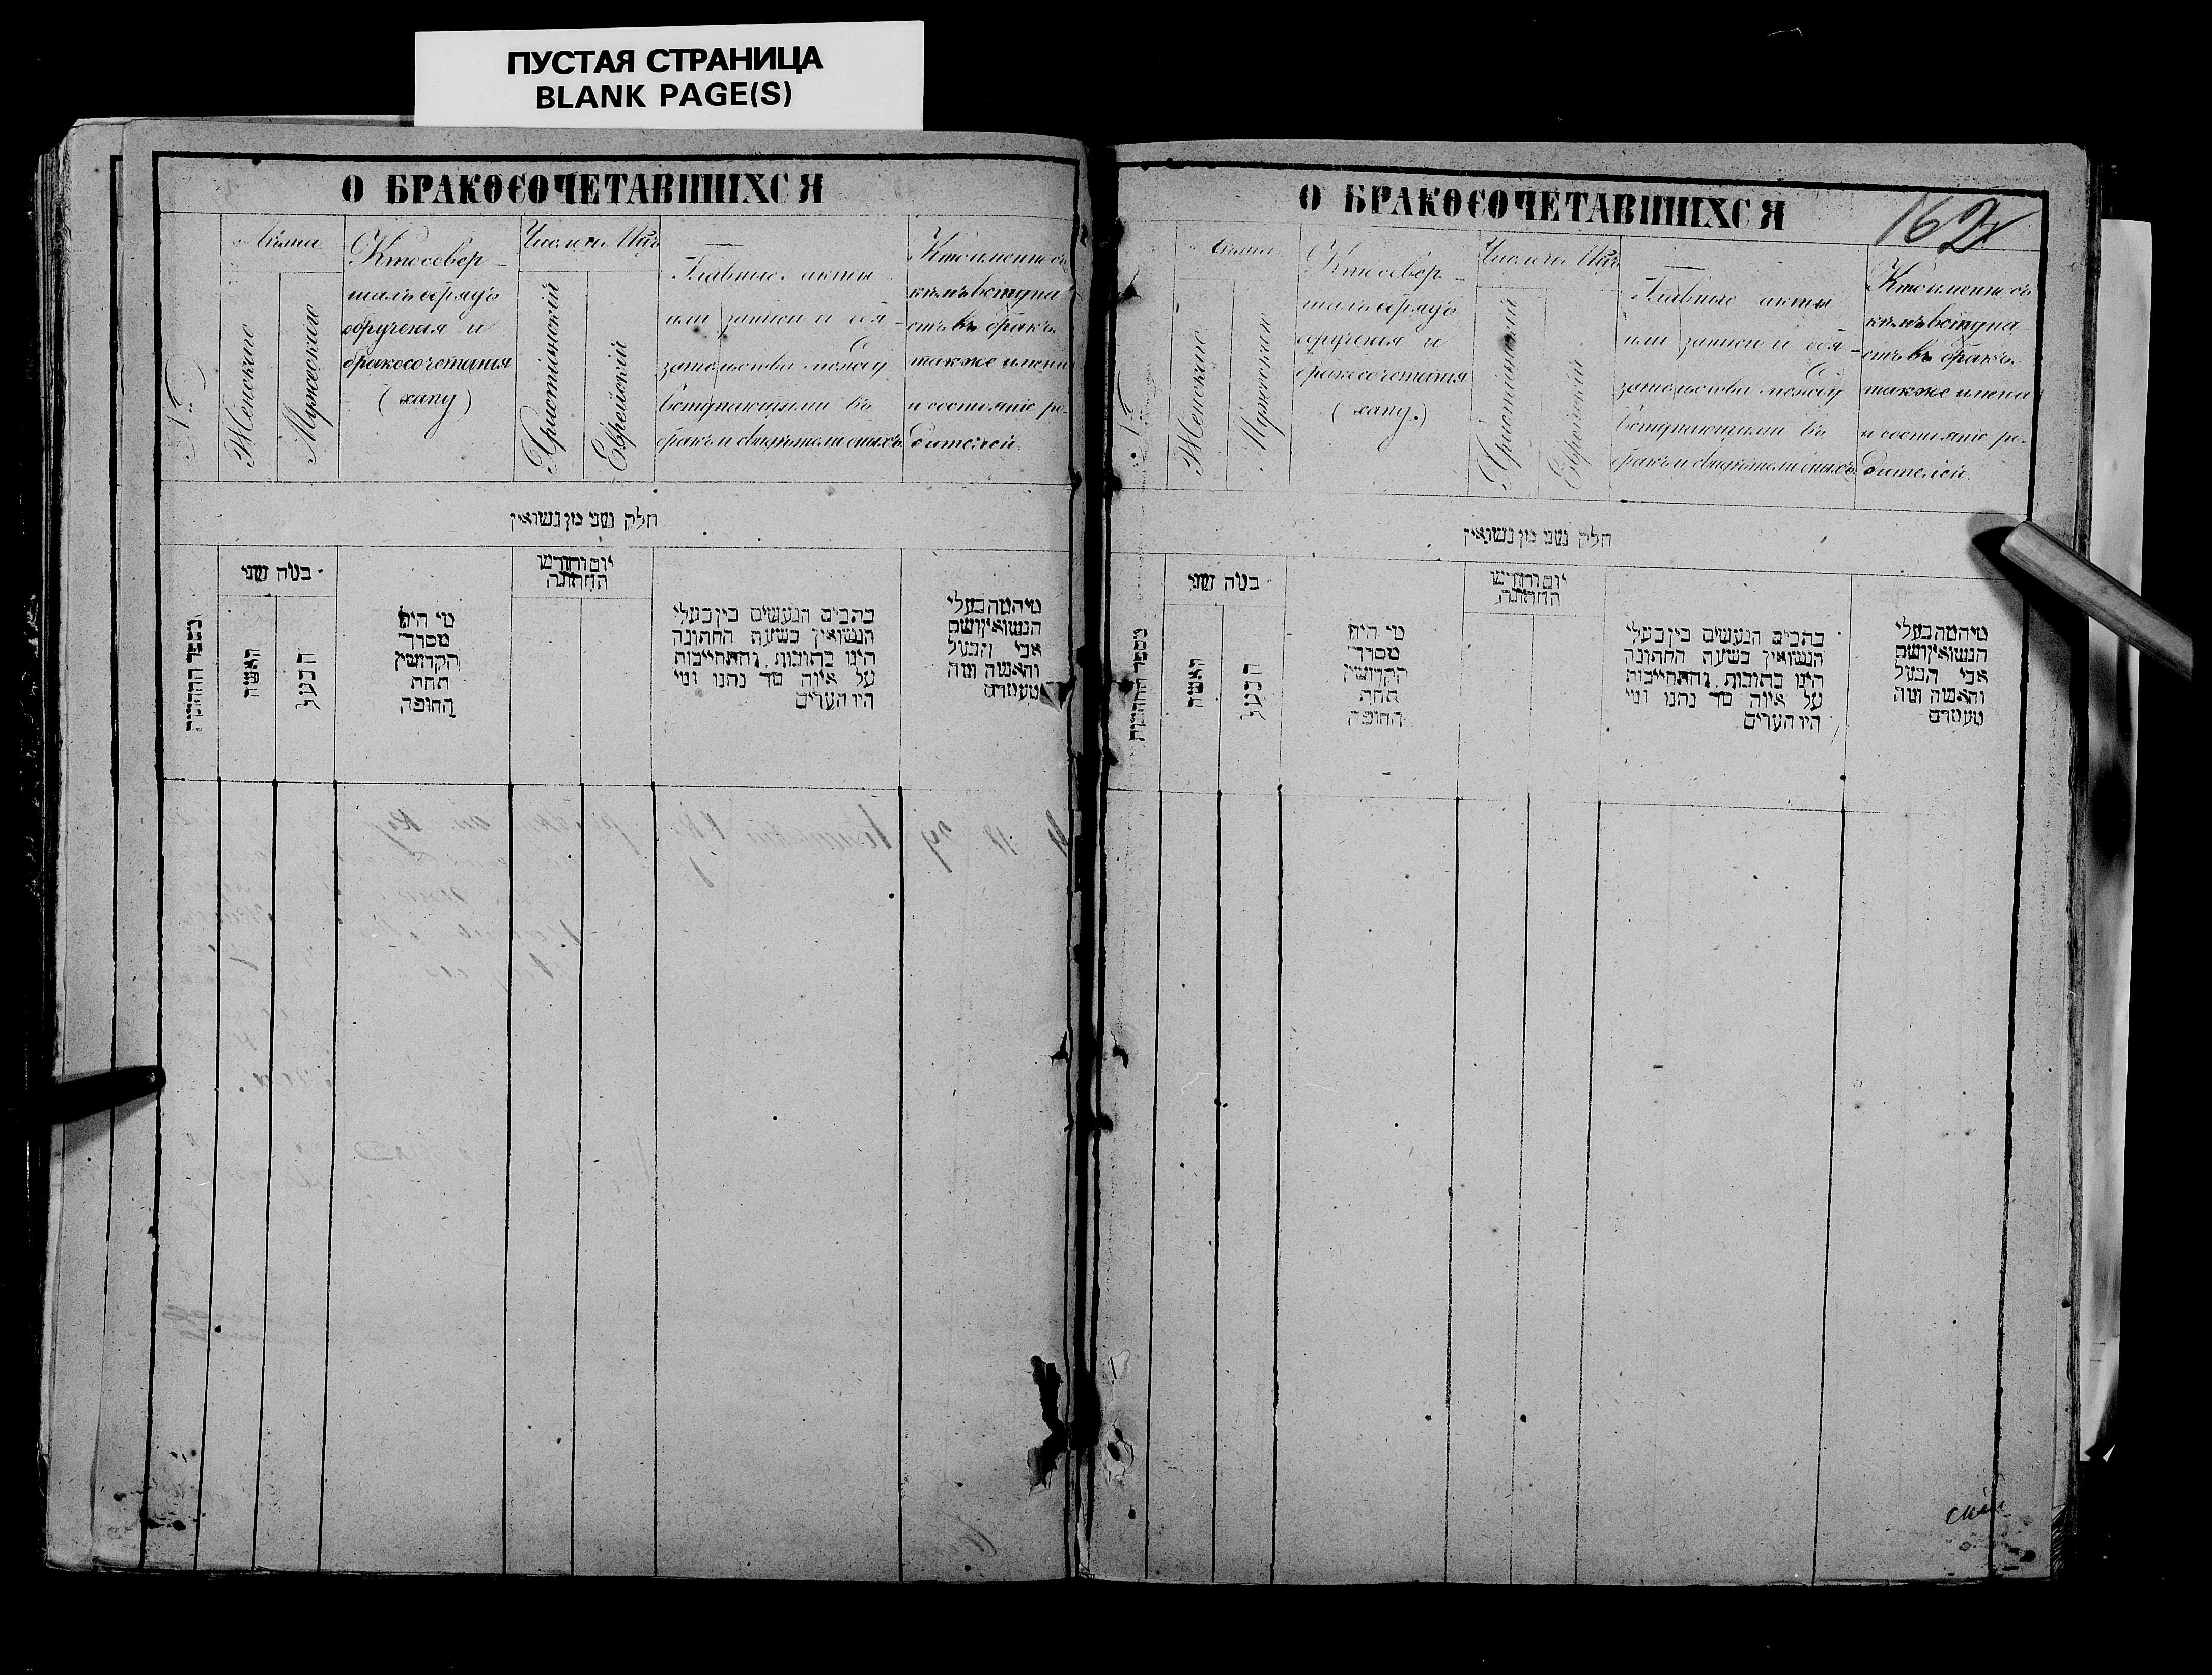 ПУСТАЯ СТРАНИЦА
BLANK PAGE(S)
О БРАКОСОЧЕТАВШИХСЯ
Лѣта
Женскаго
Мужескаго
Кто совер-
шалъ обрядъ
обрученія и
бракосочетанія
(хупу)
Число и Мѣс
Христіянскій
Еврейскій
Главные акты
или записи и обя-
зательства между
вступающими въ
бракъ и свидѣтели оныхъ
Кто именно съ
кѣмъ вступа
етъ въ бракъ
также имена
и состояніе ро-
дителей.
חלק שני מן נשואין
מספר החתונות
כמה שני
האשה
הבעל
מי היה
מסדר
הקדושין
תחת
החופה
יום וחודש
החתונה
כתבים הנעשים בין בעלי
הנשואין בשעת החתונה
היינו כתובות והתחייבות
על איזה סך נתנו ומי
היו העדים
מי המה בעלי
הנשואין ושם
אבי הבעל
והאשה ומה
מעמדם
О БРАКОСОЧЕТАВШИХСЯ
162
Лѣта
Женскаго
Мужескаго
Кто совер-
шалъ обрядъ
обрученія и
бракосочетанія
(хупу.)
Число и Мѣс
Христіянскій
Еврейскій
Главные акты
или записи и обя-
зательства между
вступающими въ
бракъ и свидѣтели оныхъ
Кто именно съ
кѣмъ вступа
етъ въ бракъ
также имена
и состояніе ро-
дителей.
חלק שני מן נשואין
מספר החתונות
כמה שני
האשה
הבעל
מי היה
מסדר
הקדושין
תחת
החופה
יום וחודש
החתונה
כתבים הנעשים בין בעלי
הנשואין בשעת החתונה
היינו כתובות והתחייבות
על איזה סך נתנו ומי
היו העדים
מי המה בעלי
הנשואין ושם
אבי הבעל
והאשה ומה
מעמדם